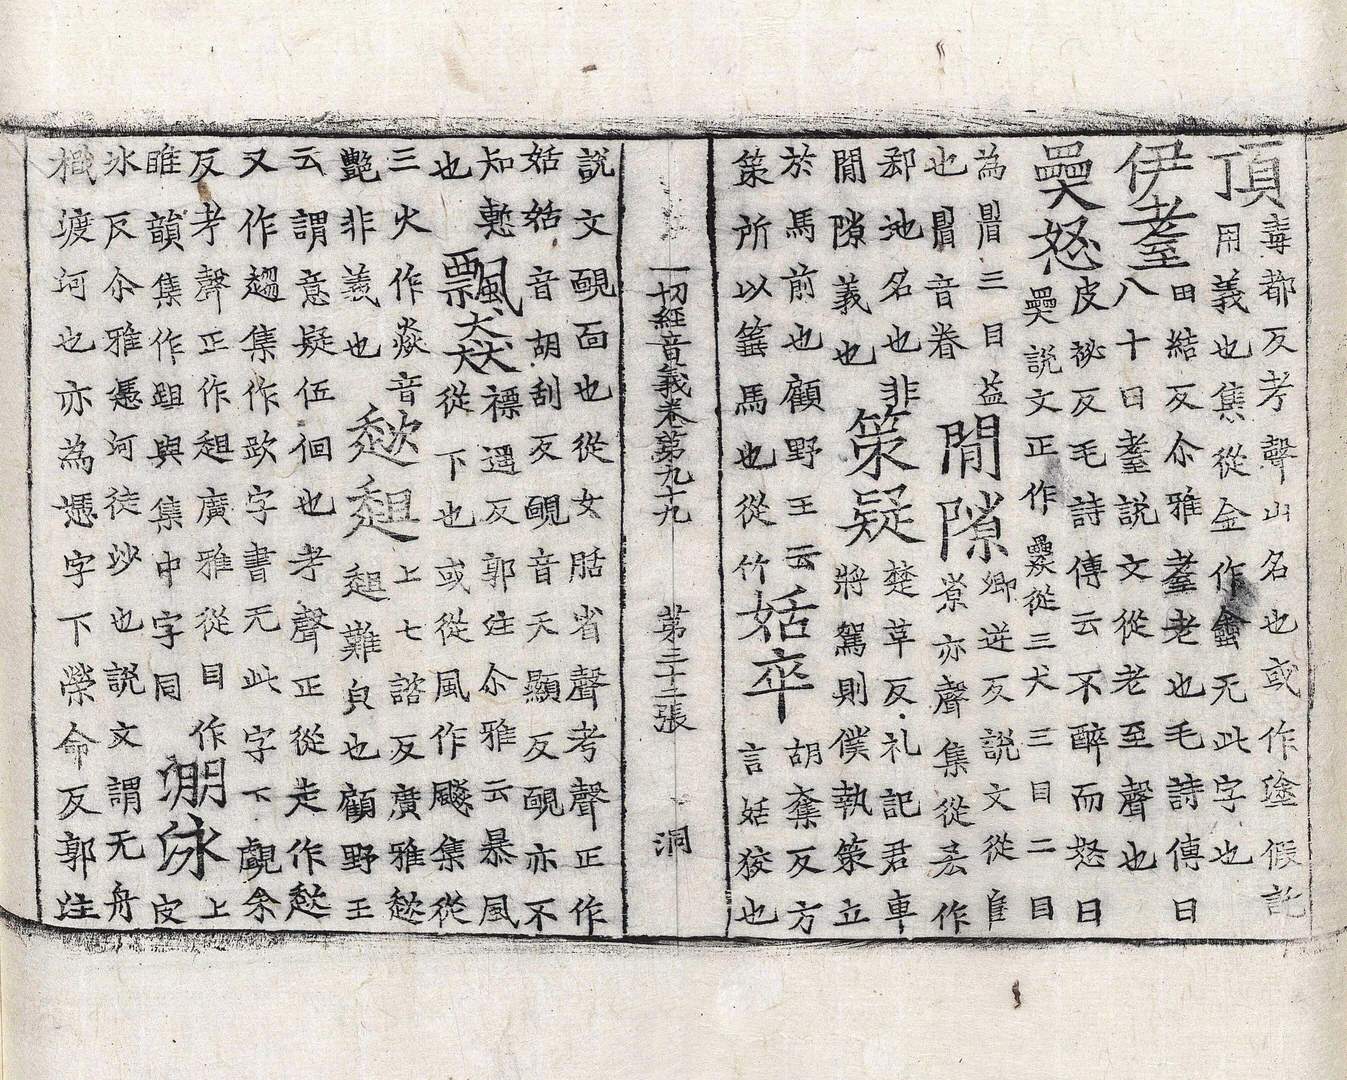 頂毒都反考聲山名也或作塗假託
用義也集從金作𨥁无此字也
伊耋田結反尒雅耋老也毛詩傳曰
八十曰耋說文從老至聲也
奰怒皮祕反毛詩傳云不醉而怒曰
奰說文正作㚌從三犬三目二目
為䀠三目益卿逆反說文從𨸏
也䀠音眷閒隙𡭴亦聲集從巢作
郄地名也非楚革反礼記君車
閒隙義也策疑將駕則僕執策立
於馬前也顧野王云胡奪反方
策所以箠馬也從竹姡卒言姡狡也
一切經音義卷第九十九 第三十二張 洞
說文靦面也從女𦧺省聲考聲正作
姡姡音胡刮反靦音天顯反靦亦不
知慙飄飆褾遥反郭注尒雅云暴風
也從下也或從風作飈集從
三火作焱音上七諮反廣雅趑
艷非義也趑趄趄難皃也顧野王
云謂意疑伍佪也考聲正從走作趑
又作趦集作欪字書无此字下覰余
反考聲正作趄廣雅從目作上
睢韻集作跙與集中字同淜泳皮
冰反尒雅馮河徒涉也說文謂无舟
檝渡河也亦為憑字下榮命反郭注